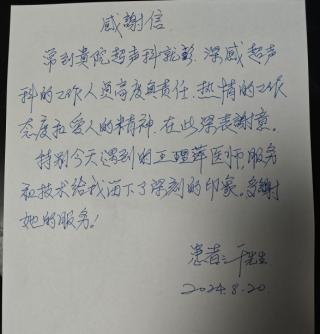 感謝信
常到貴院超声科就診.深感超声
科的工作人员高度負责任.热情的工作
态度和爱人的精神.在此深表謝意.
特别今天遇到的王  萍医师.服务
和技术给我留下了深刻的印象。多謝
她的服务!
患者:  先生
2024.8.20